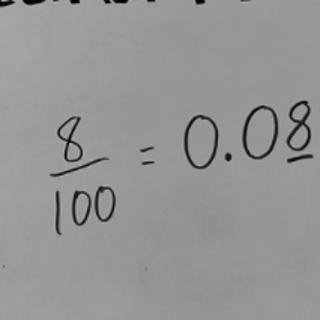 8/100 = 0.08